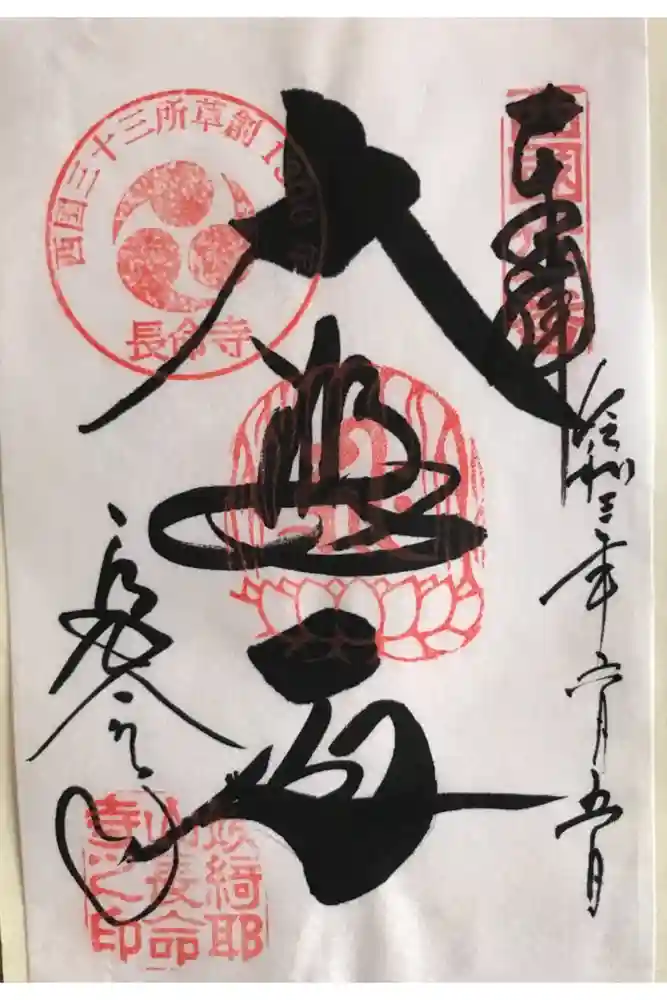 奉拝
令和三年六月五日
西国三十三所草創1300年
長命寺
大悲殿
長命寺
姨綺耶
山長命
寺之印